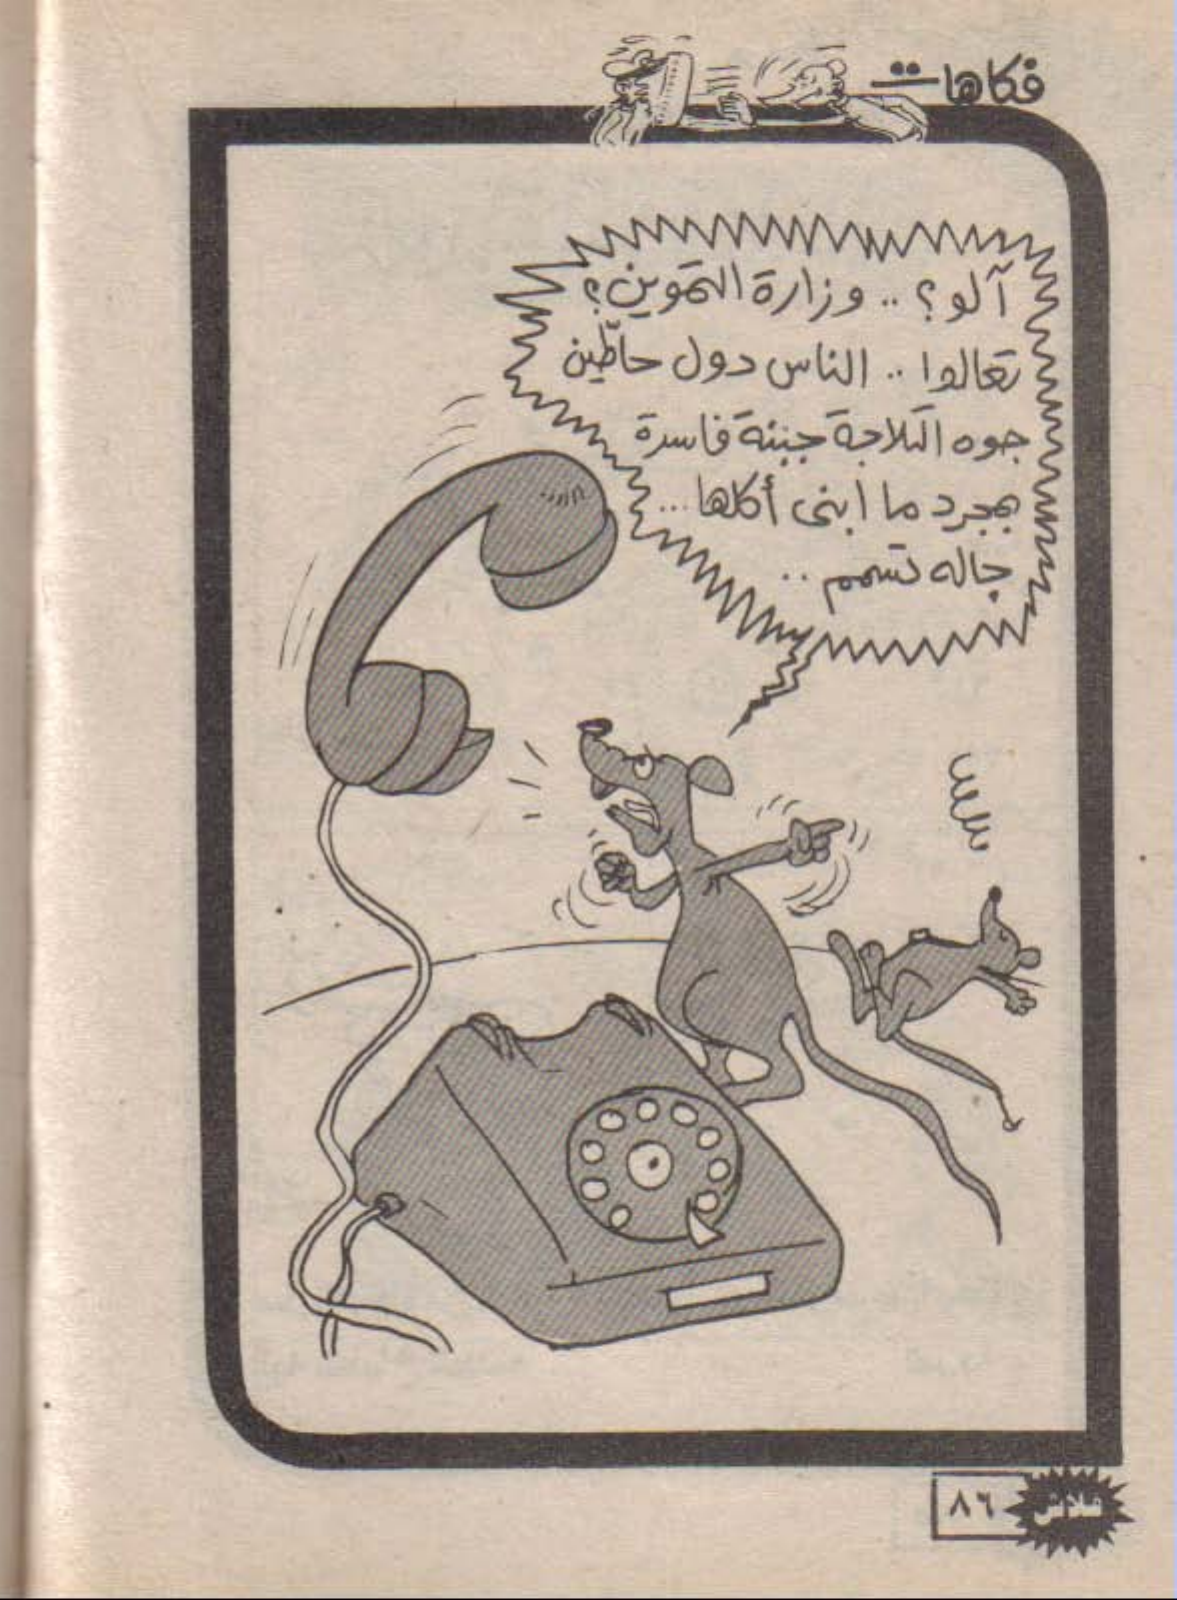 فكاهات
آلو؟.. وزارة التموين؟
تعالوا.. الناس دول حاطّين
جوه التلاجة جبنة فاسدة
بمجرد ما ابنى أكلها...
جاله تسمم..
٨٦
فلاش